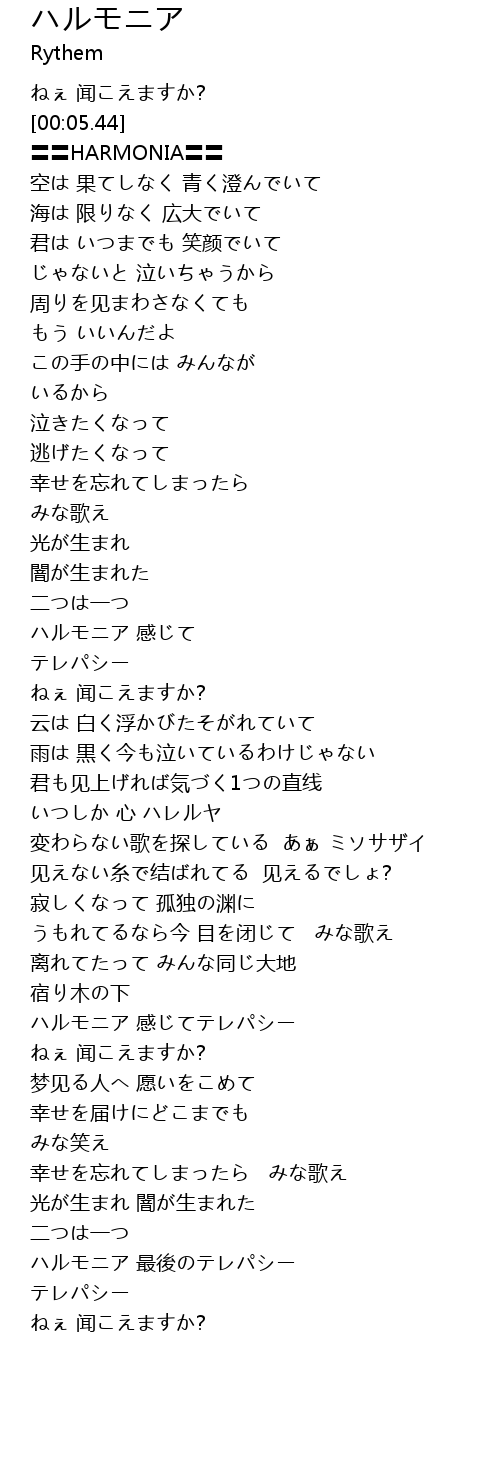 ハルモニア
Rythem
ねぇ 闻こえますか?
[00:05.44]
〓〓HARMONIA〓〓
空は 果てしなく 青く澄んでいて
海は 限りなく 広大でいて
君は いつまでも 笑颜でいて
じゃないと 泣いちゃうから
周りを见まわさなくても
もう いいんだよ
この手の中には みんなが
いるから
泣きたくなって
逃げたくなって
幸せを忘れてしまったら
みな歌え
光が生まれ
闇が生まれた
二つは一つ
ハルモニア 感じて
テレパシー
ねぇ 闻こえますか?
云は 白く浮かびたそがれていて
雨は 黒く今も泣いているわけじゃない
君も见上げれば気づく1つの直线
いつしか 心 ハレルヤ
変わらない歌を探している  あぁ ミソサザイ
见えない糸で结ばれてる  见えるでしょ?
寂しくなって 孤独の渊に
うもれてるなら今 目を闭じて　みな歌え
离れてたって みんな同じ大地
宿り木の下
ハルモニア 感じてテレパシー
ねぇ 闻こえますか?
梦见る人へ 愿いをこめて
幸せを届けにどこまでも
みな笑え
幸せを忘れてしまったら　みな歌え
光が生まれ 闇が生まれた
二つは一つ
ハルモニア 最後のテレパシー
テレパシー
ねぇ 闻こえますか?